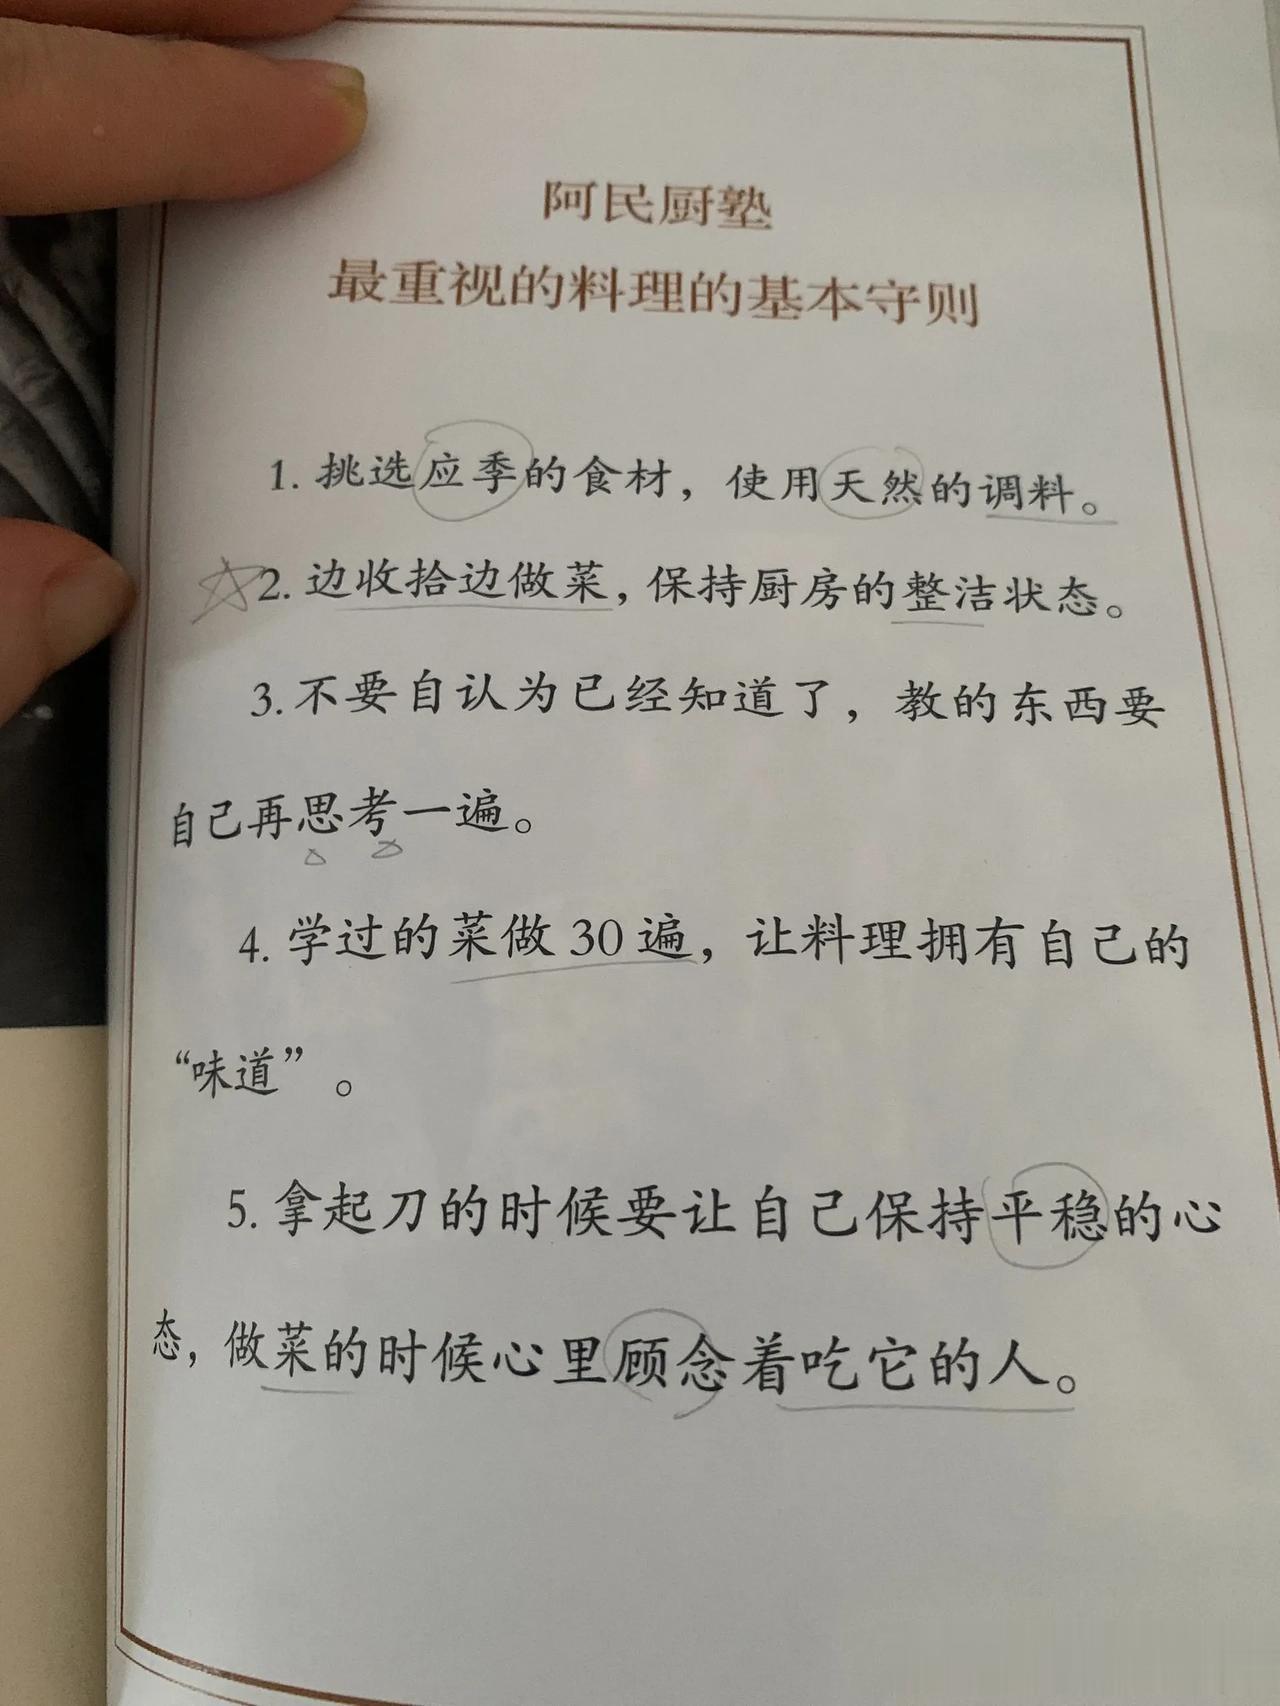 阿民厨塾
最重视的料理的基本守则
1. 挑选应季的食材，使用天然的调料。
2. 边收拾边做菜，保持厨房的整洁状态。
3. 不要自认为已经知道了，教的东西要
自己再思考一遍。
4. 学过的菜做 30 遍，让料理拥有自己的
“味道”。
5. 拿起刀的时候要让自己保持平稳的心
态，做菜的时候心里顾念着吃它的人。